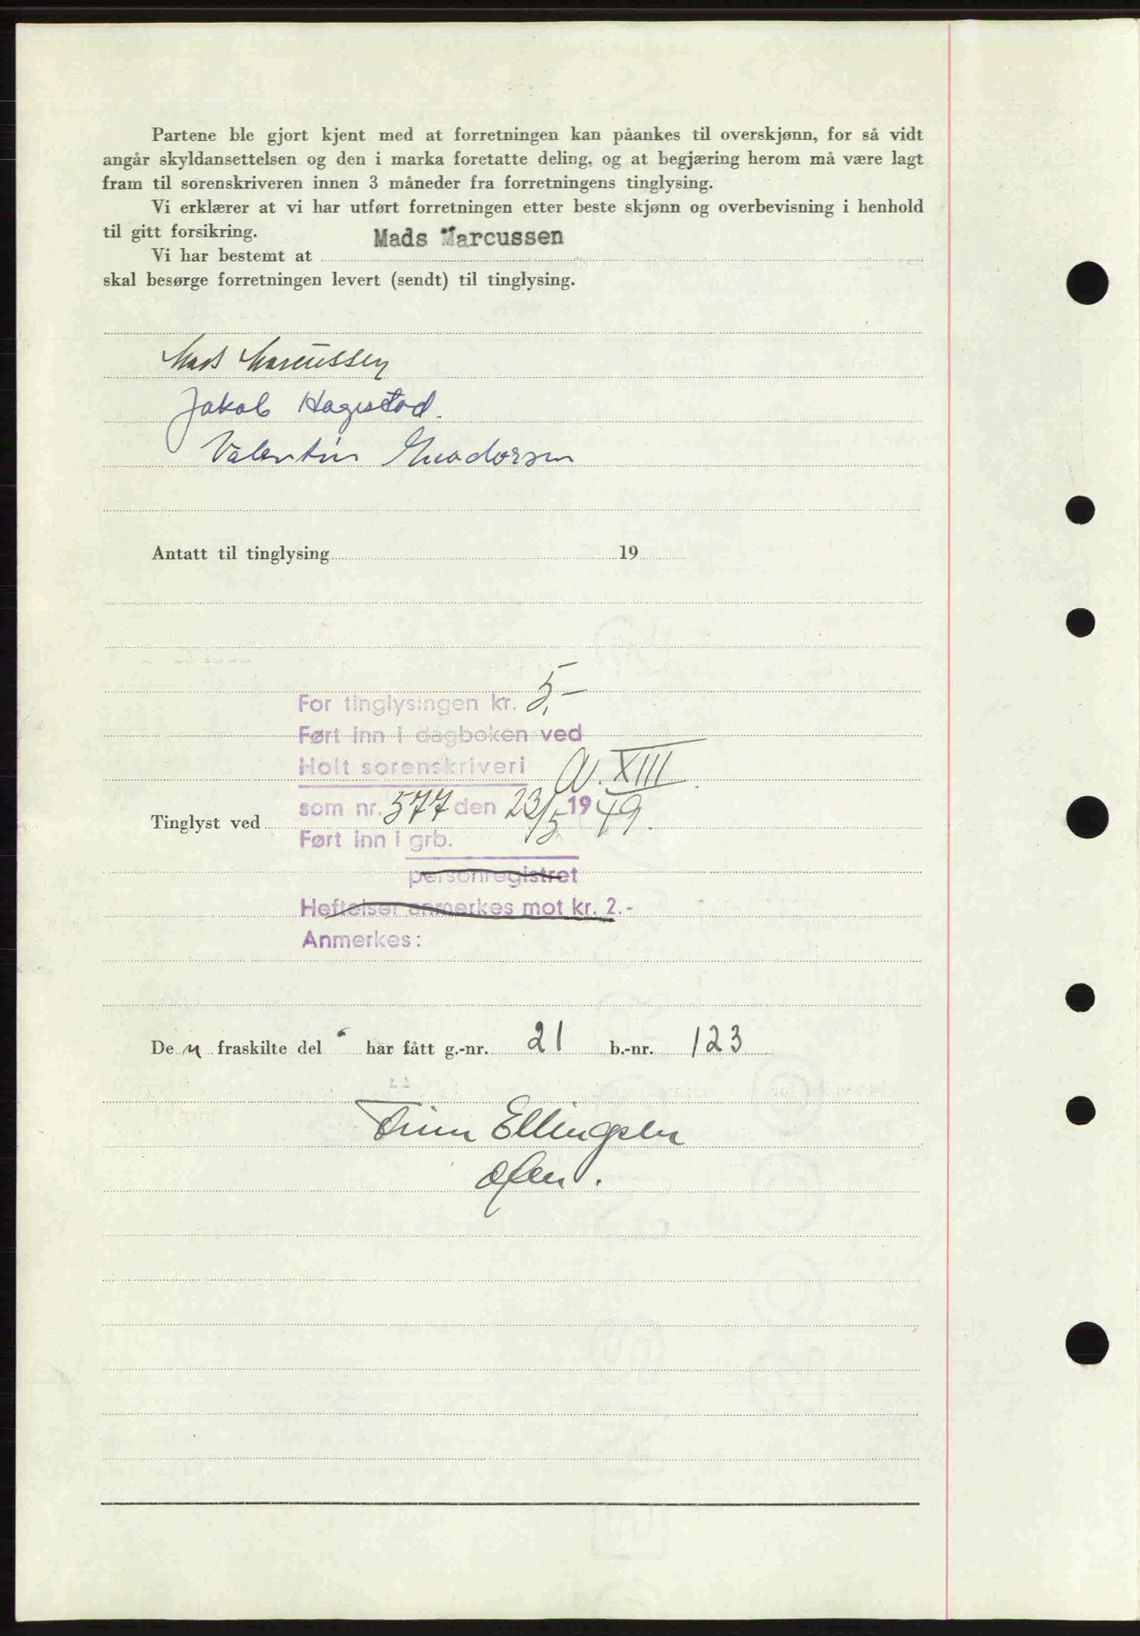 Partene ble gjort kjent med at forretningen kan påankes til overskjønn, for så vidt
angår skyldansettelsen og den i marka foretatte deling, og at begjæring herom må være lagt
fram til sorenskriveren innen 3 måneder fra forretningens tinglysing.
Vi erklærer at vi har utført forretningen etter beste skjønn og overbevisning i henhold
til gitt forsikring.
Vi har bestemt at Mads Marcussen
skal besørge forretningen levert (sendt) til tinglysing.
Mads Marcussen
Jakob Hagestad.
Valentin
Antatt til tinglysing 19
For tinglysingen kr. 5,-
Ført inn i dagboken ved
Holt sorenskriveri A. XIII.
som nr. 577 den 23/5 1949.
Tinglyst ved
Ført inn i grb.
personregistret
Heftelser anmerkes mot kr. 2.-
Anmerkes:
De n fraskilte del har fått g.-nr. 21 b.-nr. 123
Finn Ellingsen